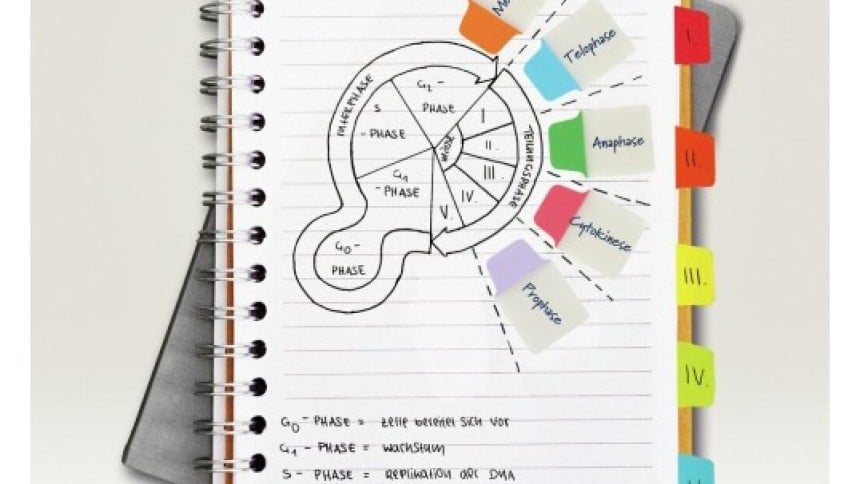 Telophase
Anaphase
Cytokinese
Prophase
INTERPHASE
G₂ -
PHASE
S
- PHASE
G₁
- PHASE
G₀ -
PHASE
MITOSE
TEILUNGSPHASE
I
II.
III.
IV.
V.
I.
II.
III.
IV.
G₀ - PHASE = Zelle bereitet sich vor
G₁ - PHASE = Wachstum
S - PHASE = Replikation der DNA